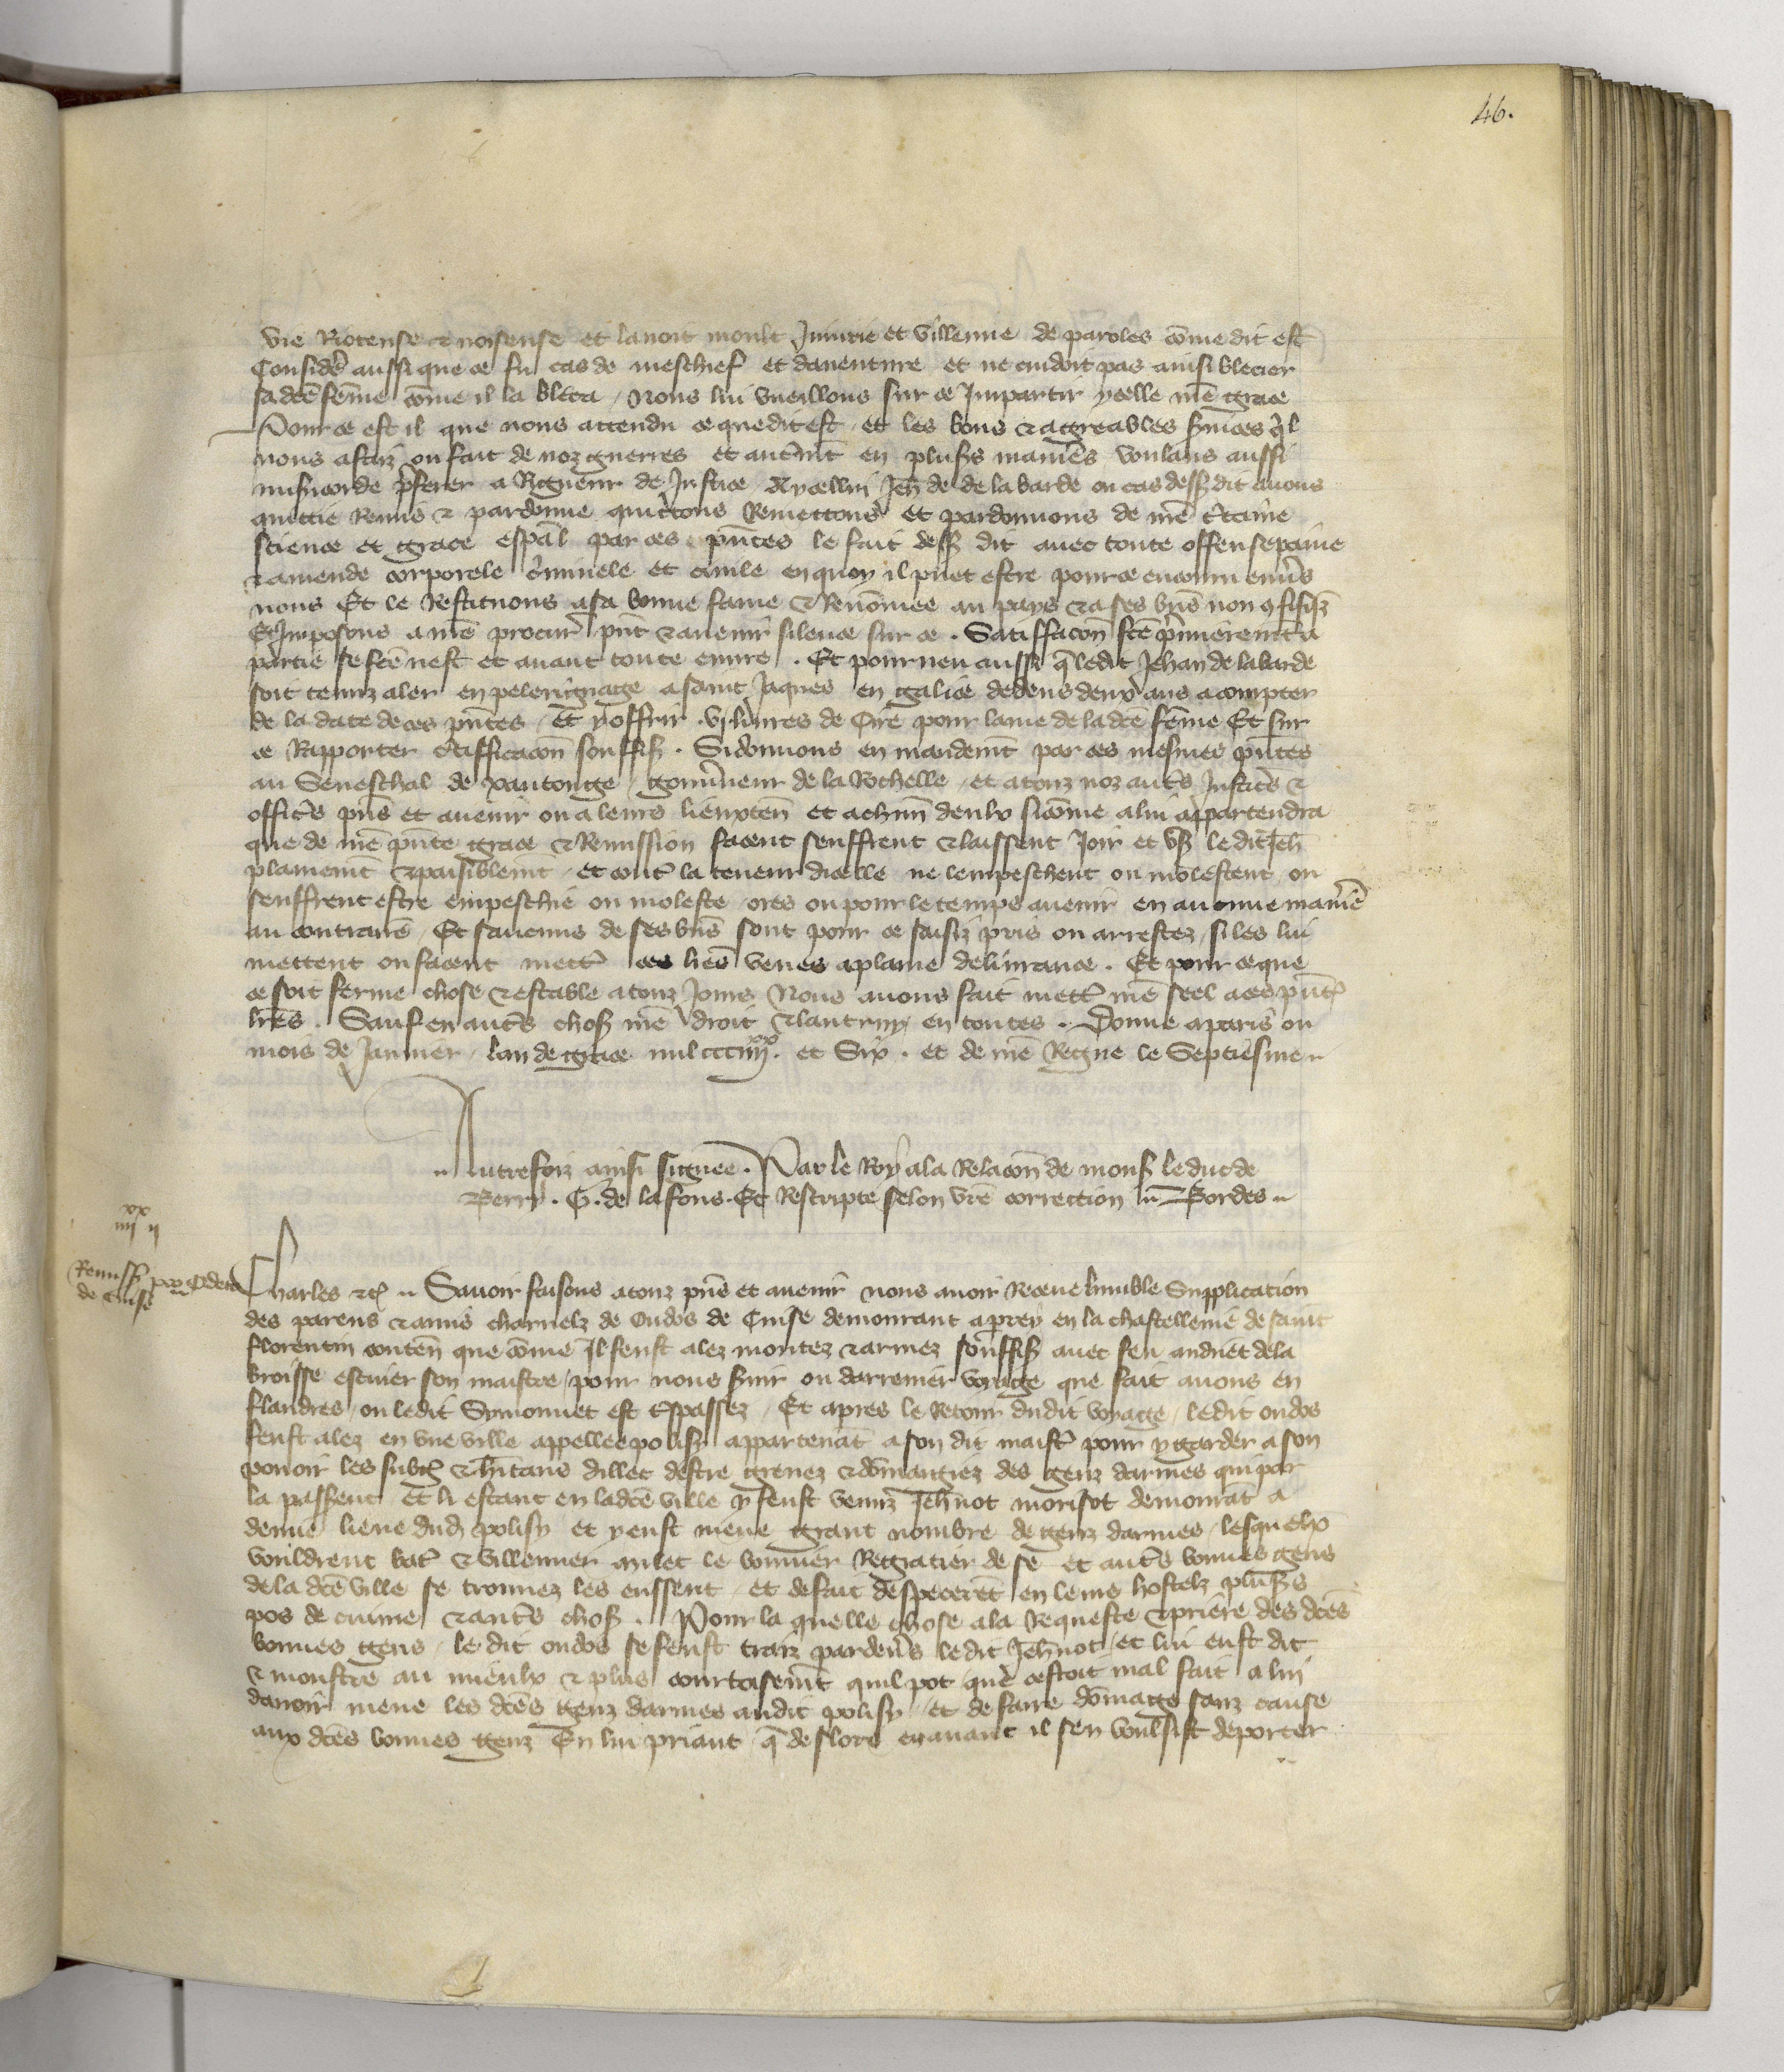 46.
vie Rioteuse & noiseuse et lavoit moult Iniurie et villenne de paroles cōme dit est
Consider̄ aussi que ce fu cas de meschief et daventure et ne cuidoit pas ainsi blecier
sa dcē fēme cōme il la bleca / Nous lui vueillons sur ce Impartir ycelle nr̄e grace
Pour ce est il que nous attendu ce que dit est et les bons & aggreables s̄uices q̄l
nous a faiz ou fait de noz guerres et aut̄mēt en plus̄s manier̄s voulans aussi
mis̄icorde p̄ferer a Rigueur de Justice A ycellui Jeh̄ de de la barde ou cas dess̄ dit avons
quittié Remis & pardonné quittons Remettons et pardonnons de nr̄e c̄taine
science et grace esp̄al par ces p̄ntes le fait dess̄ dit avec toute offense paine
& amende corporele c̄minele et civile en quoy il puet estre pour ce encouru env̄s
nous Et le Restituons a sa bonne fame & Renōmee au pays & a ses bīes non 9fisq̄z
Et Imposons a nr̄e procur̄ p̄nt & avenir silence sur ce . Satisfacōn fc̄e p̄mierem̄t a
partie se fc̄e nest et avant toute euvre . Et pourveu aussi q̄ ledit Jehan de la barde
soit tenuz aler en pelerignage a saint Jaques en galice dedens deux ans a compter
de la date de ces p̄ntes Et y offrir . vj. livres de Cire pour lame de la dcē fēme Et sur
ce Rapporter c̄tifficacōn souffis̄ . Si donnons en mandem̄t par ces mesmes p̄ntes
au Seneschal de Xantonge / gouv̄neur de la Rochelle / et a touz noz aut̄s Justic̄s &
offic̄s p̄ns et avenir ou a leurs lieuxten̄ et a ch̄un deulx sicōme a lui appartendra
que de nr̄e p̄nte grace & Remission facent seuffrent & laissent Joir et us̄ le dit Jeh̄
plainem̄t & paisiblem̄t et cont̄ la teneur dicelle ne lempeschent ou molestent ou
seuffrent estre empeschié ou molesté ores ou pour le temps avenir en aucune manier̄e
au contraire / Et saucuns de ses bīes sont pour ce saisiz pris ou arrestez / si les lui
mettent ou facent mett̄ ces lr̄es veues a plaine delivrance . Et pour ce que
ce soit ferme chose & estable a touz jours Nous avons fait mett̄ nr̄e seel a ces p̄nt̄
lr̄es . Sauf en aut̄s chos̄ nr̄e droit & lautruy en toutes . Donné a paris ou
mois de Janvier lan de grace mil ccciiij.xx et Six . et de nr̄e Regne le Septiesme ..
Autrefoiz ainsi signee . Par le Roy a la Relacōn de mons̄ le duc de
Berry . G. de la fons . Et Rescripte selon vr̄e correction .. Bordes ..
iiij xx ij
Remiss̄ por Oudot
de Cuise
Charles &c̄ .. Savoir faisons a touz p̄ns et avenir nous avoir Receue humble Supplication
des parens & amis charnelz de Oudos de Cuise demourant a prey en la chastellenie de saint
florentin conten̄ que cōme Il seust alez montez & armez souffis̄ avec feu andruet de la
broisse escuier son maistre / pour nous s̄uir ou darrenier voyage que fait avons en
flandres / ou ledit Symonnet est t̄spassez / Et apres le Retour dudit voyage / ledit oudos
seust alez en une ville appellee polisy appartenāt a son dit maist̄ pour y garder a son
povoir les subḡ & h̄itans dillec destre grevez & dōmagiez des genz darmes qui par
la passent Et li estant en la dcē ville y feust venuz Jeh̄not morisot demourāt a
demie lieue dud̄ polisy et y eust mené grant nombre de genz darmes / lesquelx
vouldrent bat̄ & villenner milet le bonnier Regratier de sē et aut̄s bonnes gens
de la dcē ville se trouvez les eussent / et de fait despecer̄et en leurs hostelz plus̄s
pos de cuivre & aut̄s chos̄ . Pour la quelle chose a la Requeste & priere des dcēs
bonnes gens / le dit oudos se feust traiz pardev̄s le dit Jeh̄not et lui eust dit
& monstré au mieulx & plus courtoisem̄t quil pot que cestoit mal fait a lui
davoir mené les dcēs genz darmes audit polisy / et de faire dōmage sanz cause
aux dcēs bonnes genz En lui priant q̄ deslors en avant il sen voulsist deporter